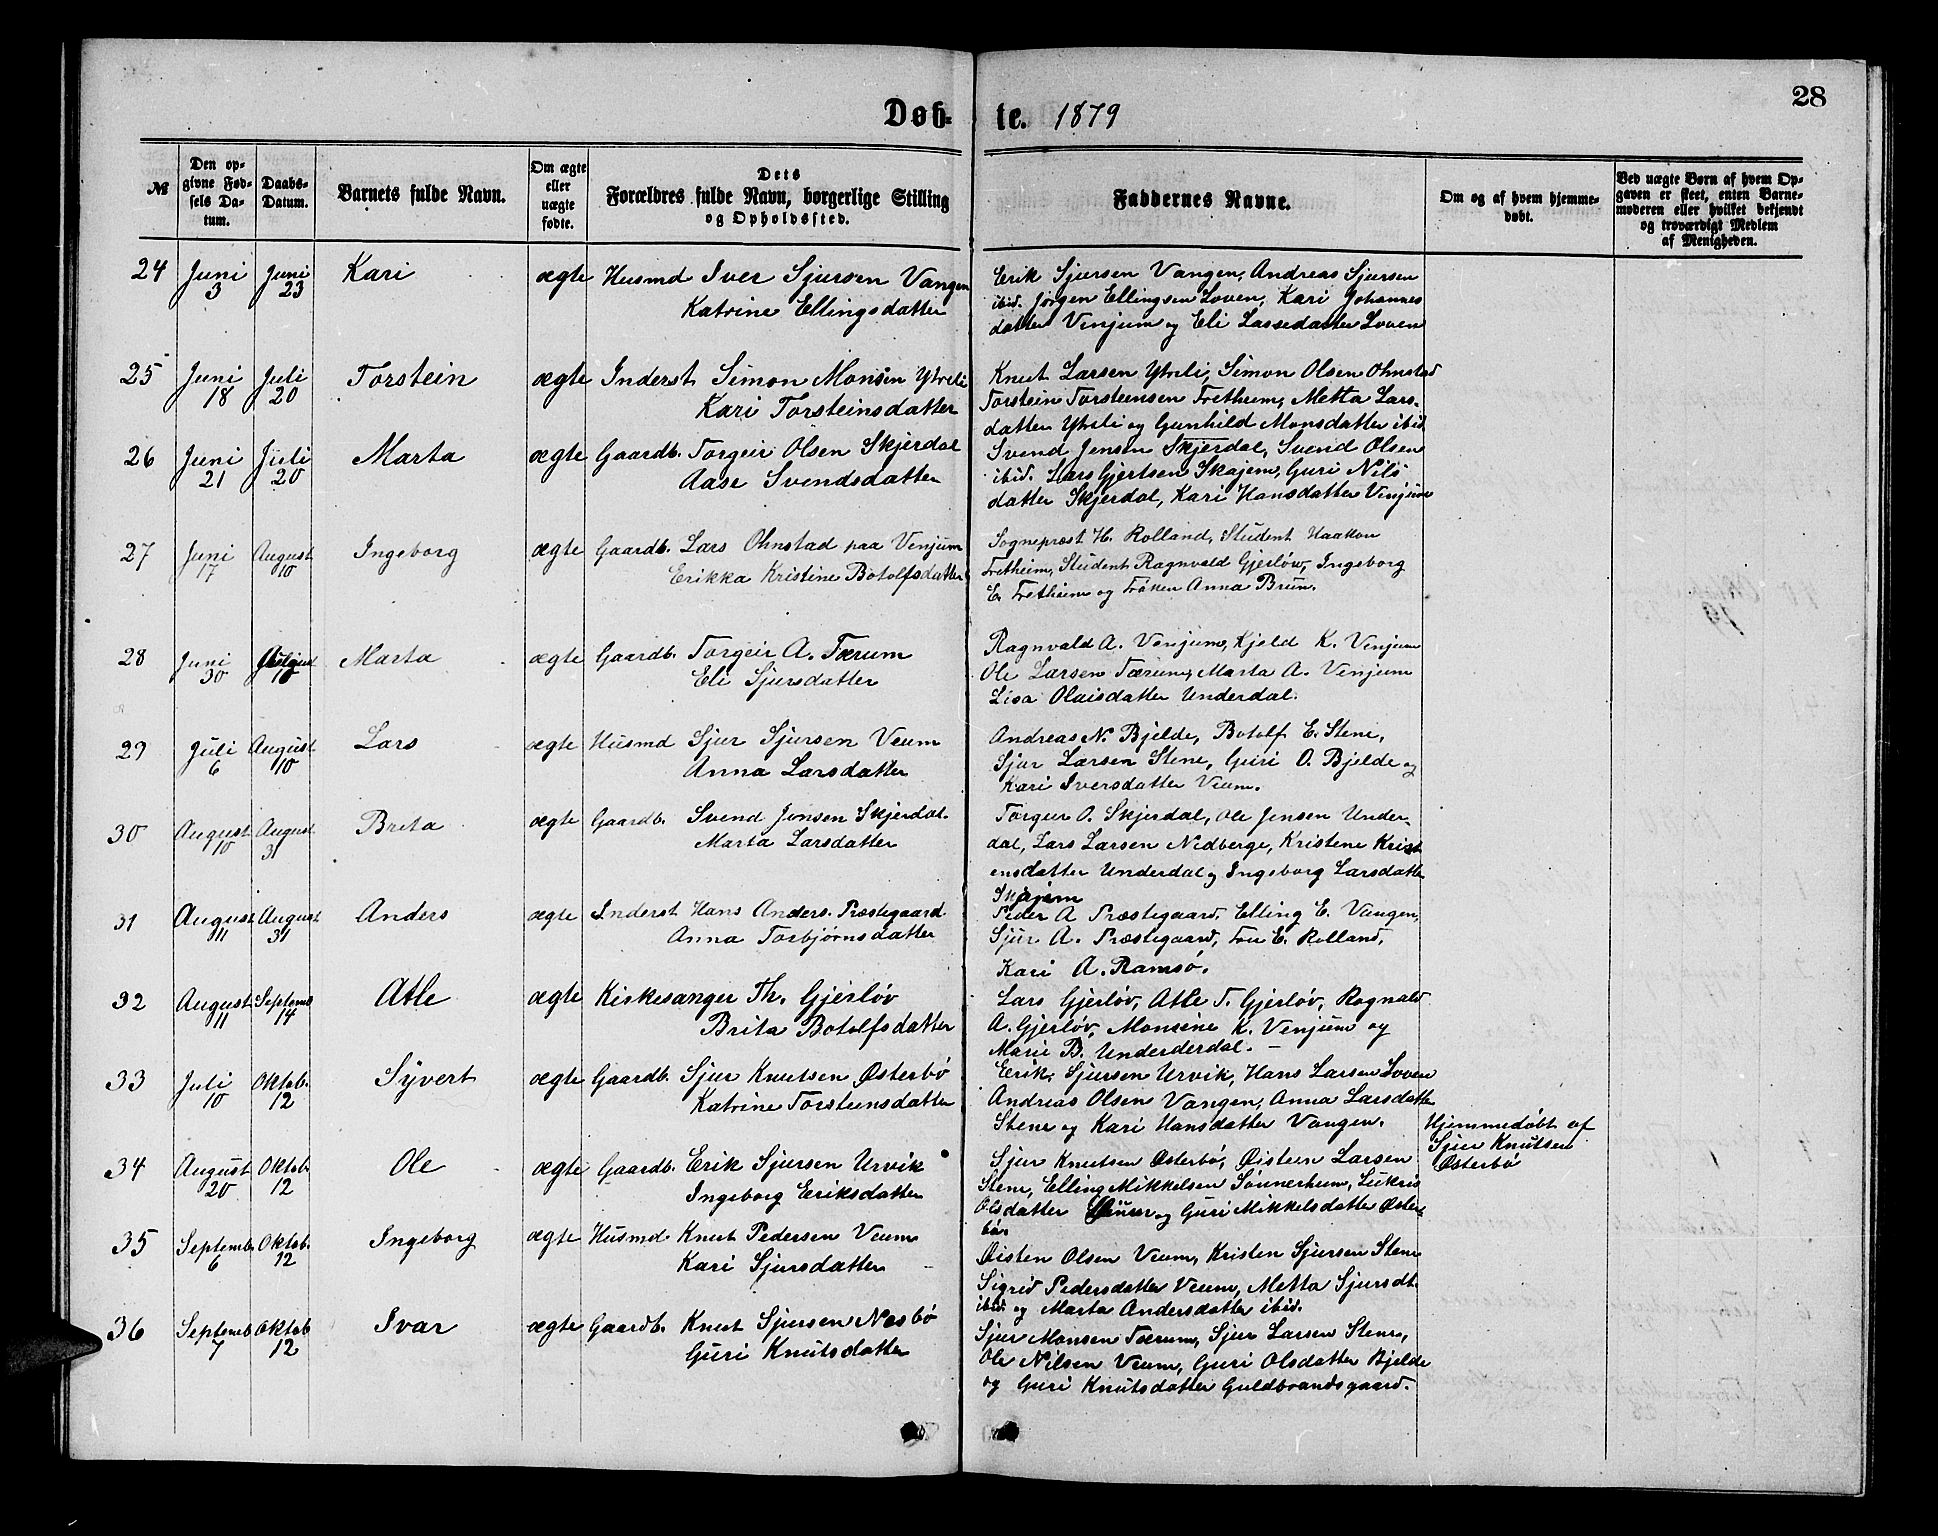 28
Døb- te. 1879
№
Den opgivne Fødsels Datum.
Daabs-Datum.
Barnets fulde Navn.
Om ægte eller uægte fødte.
Dets Forældres fulde Navn, borgerlige Stilling og Opholdssted.
Faddernes Navne.
Om og af hvem hjemmedøbt.
Ved uægte Børn af hvem Opgaven er skeet, enten Barnemoderen eller hvilket bekjendt og troværdigt Medlem af Menigheden.
24 Juni 3 Juni 23 Kari ægte Husmd Iver Sjursen Vangen
Katrine Ellingsdatter
Erik Sjursen Vangen, Andreas Sjursen
ibid. Jørgen Ellingsen Loven, Kari Johannes
datter Venjum og Eli Lassedatter Loven
25 Juni 18 Juli 20 Torstein ægte Inderst Simon Monsen Ytreli
Kari Torsteinsdatter
Knut Larsen Ytreli, Simon Olsen Ohnstad
Torstein Torsteinsen Fretheim, Metta Lars-
datter Ytreli og Gunhild Monsdatter ibid
26 Juni 21 Juli 20 Marta ægte Gaardb. Torgeir Olsen Skjerdal
Aase Svendsdatter
Svend Jensen Skjerdal, Svend Olsen
ibid. Lars Gjertsen Skajem, Guri Nils
datter Skjerdal, Kari Hansdatter Venjum
27 Juni 17 August 10 Ingeborg ægte Gaardb. Lars Ohnstad paa Venjum
Erikka Kristine Botolfsdatter
Sogneprest H. Rolland, Student Haakon
Fretheim, Student Ragnvald Gjerløw, Ingeborg
E. Fretheim og Frøken Anna Brun.
28 Juni 30 Marta ægte Gaardb. Torgeir A. Tærum
Eli Sjursdatter
Ragnvald A. Venjum, Kjeld K. Venjum
Ole Larsen Tærum, Marta A. Venjum
Lisa Olaisdatter Underdal.
29 Juli 6 August 10 Lars ægte Husmd Sjur Sjursen Veum
Anna Larsdatter
Andreas N. Bjelde, Botolf E. Stene,
Sjur Larsen Stene, Guri O. Bjelde og
Kari Iversdatter Veum.
30 August 10 August 31 Brita ægte Gaardb. Svend Jensen Skjerdal.
Marta Larsdatter
Torgeir O. Skjerdal, Ole Jensen Under-
dal, Lars Larsen Nedberge, Kristene Krist
ensdatter Underdal og Ingeborg Larsdatter
Skajem
31 August 11 August 31 Anders ægte Inderst Hans Anders. Præstegaard
Anna Torbjørnsdatter
Peder A Præstegaard, Elling E. Vangen,
Sjur A. Præstegaard, Fru E. Rolland,
Kari A. Ramsø.
32 August 11 Septemb 14 Atle ægte Kirkesanger Th. Gjerløv
Brita Botolfsdatter
Lars Gjerløv, Atle T. Gjerløv, Ragnald
A. Gjerløv, Monsine K. Venjum og
Marie B. Underderdal. –
33 Juli 10 Oktob. 12 Syvert ægte Gaardb. Sjur Knutsen Østerbø
Katrine Torsteinsdatter
Erik Sjursen Urvik, Hans Larsen Loven
Andreas Olsen Vangen, Anna Larsdatter
Stene og Kari Hansdatter Vangen.
Hjemmedøbt af
Sjur Knutsen
Østerbø
34 August 20 Oktob. 12 Ole ægte Gaardb. Erik Sjursen Urvik
Ingeborg Eriksdatter
Sjur Knutsen Østerbø, Øisten Larsen
Stene, Elling Mikkelsen Sønnerheim, Lukris
Olsdatter og Guri Mikkelsdatter Øster
bø.
35 Septemb. 6 Oktob. 12 Ingeborg ægte Husmd. Knut Pedersen Veum
Kari Sjursdatter
Øisten Olsen Veum, Kristen Sjursen Stene
Sigrid Pedersdatter Veum, Metta Sjursdt.
ibid. og Marta Andersdatter ibid.
36 Septemb 7 Oktob 12 Ivar ægte Gaardb. Knut Sjursen Nesbø
Guri Knutsdatter
Sjur Monsen Tærum, Sjur Larsen Stene,
Ole Nilsen Veum, Guri Olsdatter Bjelde
og Guri Knutsdatter Guldbrandsgaard.